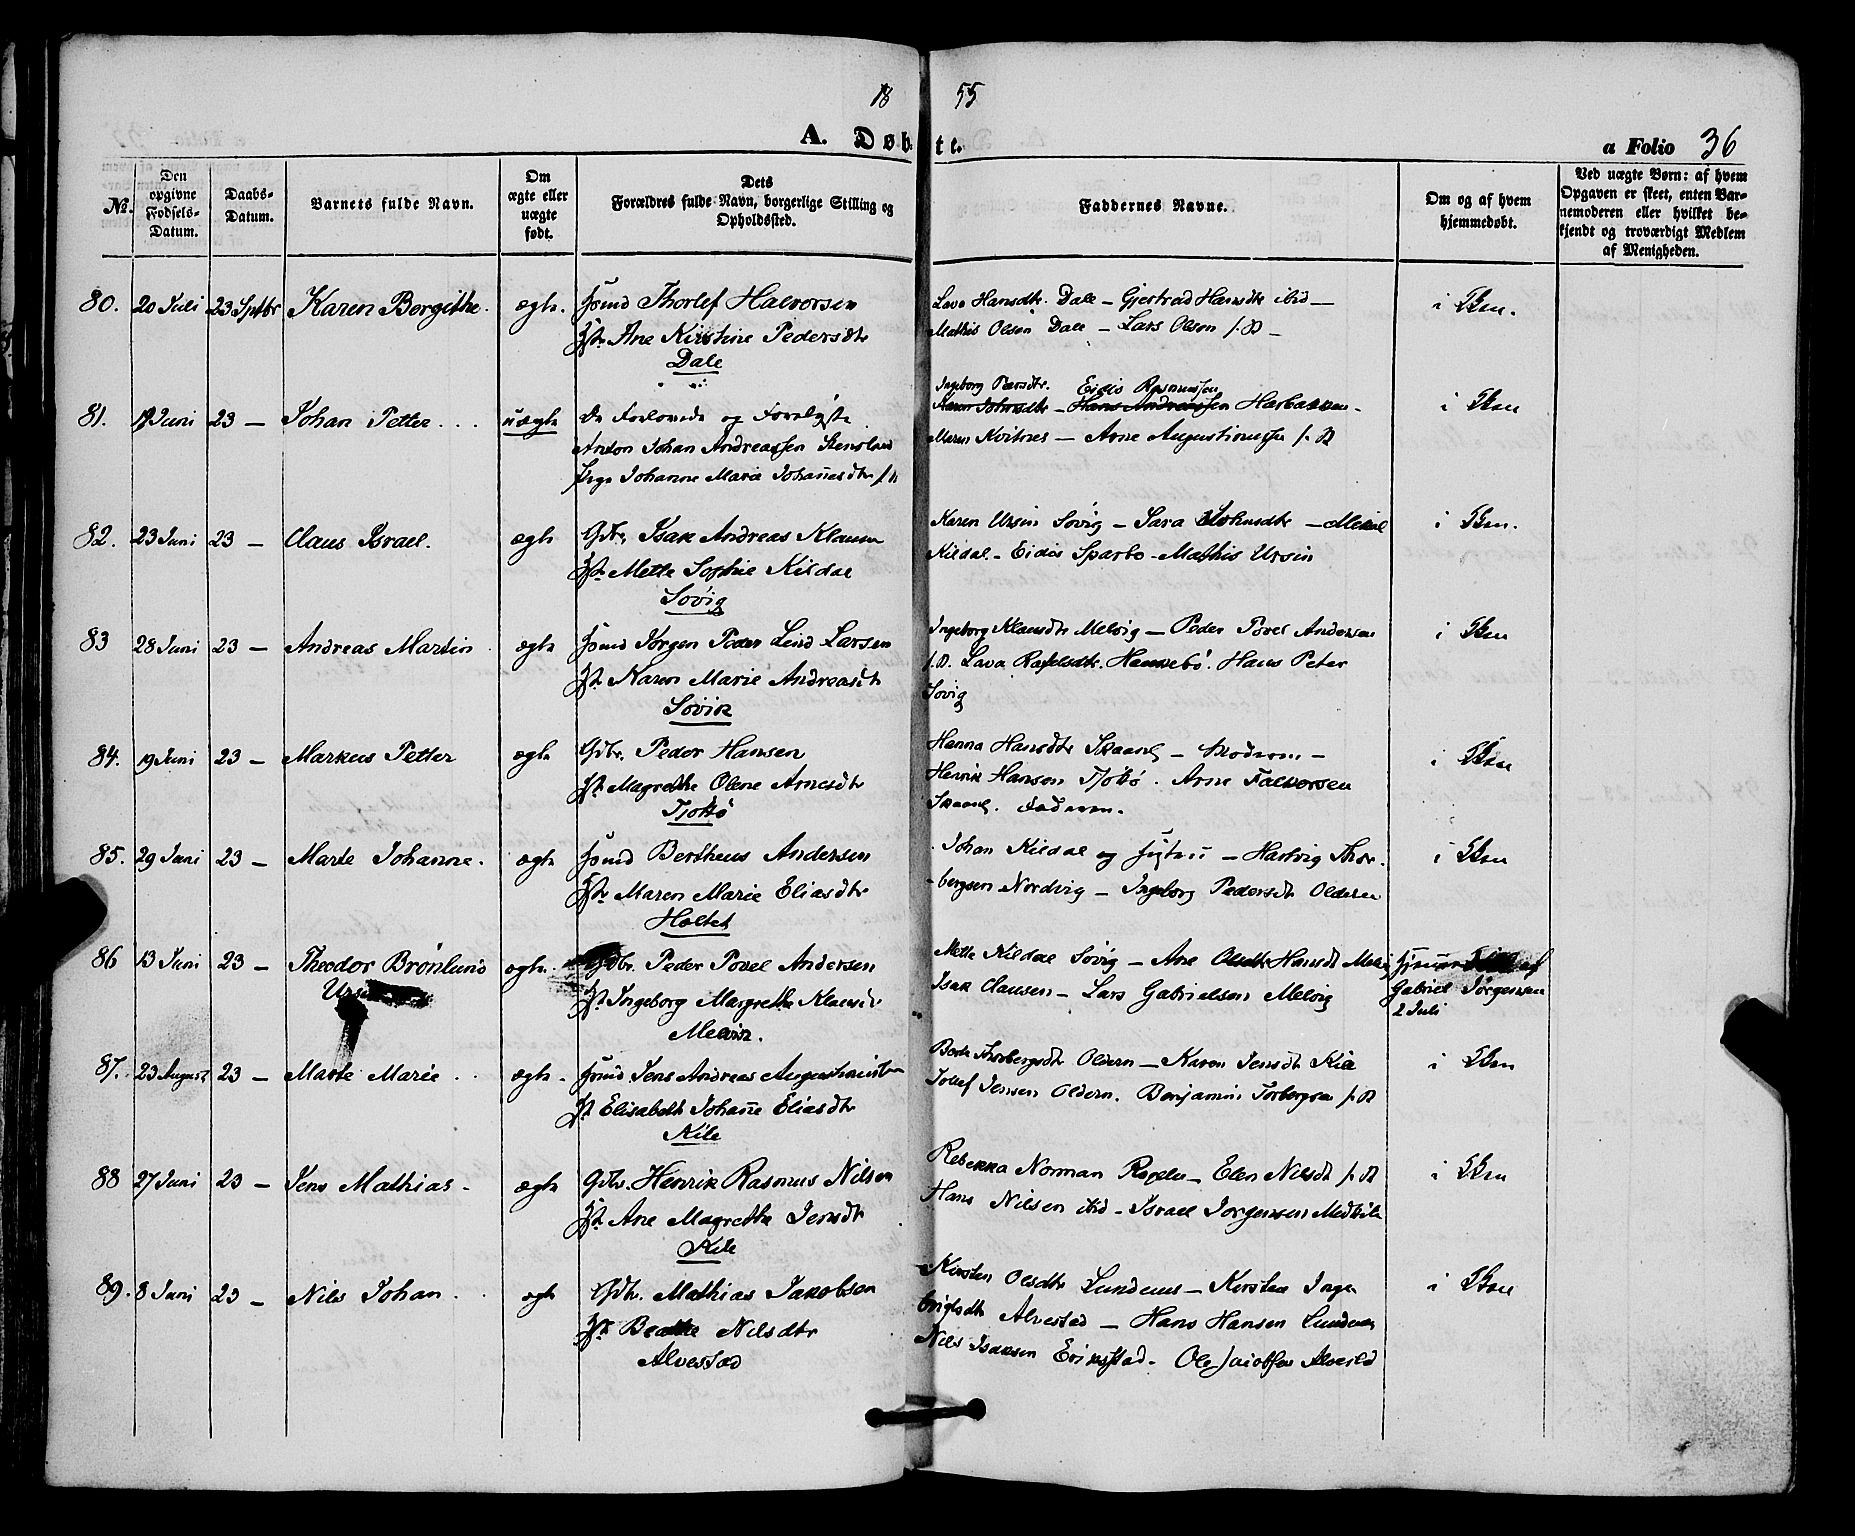 18 55
A. Døbte.
a Folio 36
No.
Den opgivne Fødsels-Datum.
Daabs-Datum.
Barnets fulde Navn.
Om ægte eller uægte født.
Dets Forældres fulde Navn, borgerlige Stilling og Opholdssted.
Faddernes Navne.
Om og af hvem hjemmedøbt.
Ved uægte Børn: af hvem Opgaven er skeet, enten Barnemoderen eller hvilket bekjendt og troværdigt Medlem af Menigheden.
80. 20 Juli 23 Sptbr Karen Borgithe. ægte. Huusmd Thorlef Halvorsen
Hst. Ane Kirstine Pedersdtr
Dale
Lava Hansdtr. Dale — Gjertrud Hansdtr ibid —
Mathis Olsen Dale — Lars Olsen f. St —
i Kken.
81. Juni 23 — Johan Petter uægte De Forlovede og
Anton Johan Andreassen Stensland
Pige Johanne Marie Johannesdtr
Ingeborg Pedersdtr. Eidis Rasmussen
Karen Johnsdtr — Hans Andreassen Harbakken —
Maren Kvitnes — Arne Augustinussen f. St
i Kken
82. 23 Juni 23 — Claus Israel. ægte Gdbr. Isak Andreas Klausen
Hst. Mette Sophie Kildal
Søvig
Karen Ursin Søvig — Sara Johnsdtr — Mekal
Kildal — Eidis Sparbo — Mathis Ursin
i Kken.
83 28 Juni 23 — Andreas Martin ægte Huusmd Jørgen Peder Lind Larsen
Hst. Karen Marie Andreasdtr
Søvik
Ingeborg Klausdtr Melvig — Peder Povel Andersen
f. St. Lava Hansebø. Hans Peter
Søvig
i Kken
84. 19 Juni 23 — Markus Petter ægte Gdbr. Peder Hansen
Hst. Magrethe Olene Arnesdtr
Tjøttø
Hanna Hansdtr Skaanl — Moderen —
Henrik Hansen Tjøttø. Arne Falkorsen
Skaanl. Faderen.
i Kken
85. 29 Juni 23 — Marte Johanne. ægte Huusmd Bertheus Andersen
Hst. Maren Marie Eliasdtr
Holtet
Johan Kildal og Hustru — Hartvig Thor-
bergsen Nordvig — Ingeborg Pedersdtr Olderen
i Kken
86 13 Juni 23 — Theodor Brønlund ægte. Gdbr. Peder Povel Andersen
Hst. Ingeborg Margrethe Klausdtr
Melvik.
Mette Kildal Søvig — Ane Hansdtr
Isak Clausen — Lars Gabrielsen Melvig
af
Gabriel Jørgensen
2 Juli
87. 23 August 23 — Marte Marie ægte. Huusmd Jens Andreas Augustinussen
Hst Elisabeth Johanne Eliasdtr
Kile
Berte Thorbergsdtr Oldern — Karen Jensdtr Kile
Jollef Jensen Oldern. Benjamin Torbergsen f. St
i Kken
88 27 Juni 23 — Jens Mathias — ægte Gdbr. Henrik Rasmus Nilsen
Hst. Ane Magrethe Jensdtr
Kile
Rebekka Norman — Elen Nilsdtr f. St
Hans Nilsen ibid — Israel Jørgensen
i Kken
89. 8 Juni 23 — Nils Johan ægte Gdbr. Mathias Jakobsen
Hst Beathe Nilsdtr
Alvestad
Kirsten Olsdtr Lundenes — Kirsten Inge
brigtsdtr Alvestad — Hans Hansen Lundenes
Nils Isaksen Erikstad. Ole Jacobsen Alvestad
i Kken